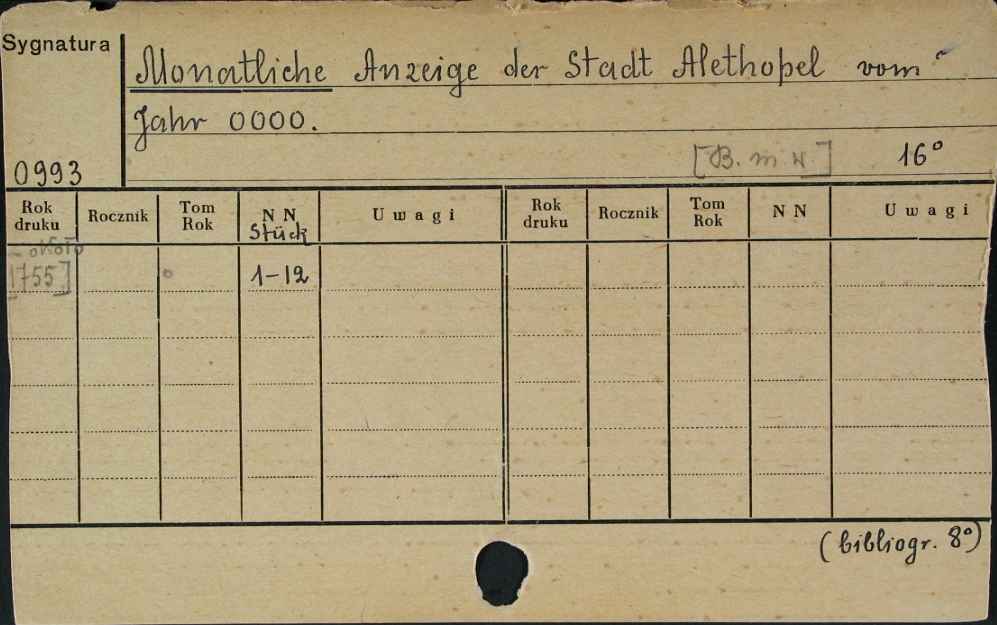 Sygnatura
Monatliche Anzeige der Stadt Alethopel vom
Jahr 0000.
0993 [B. m w] 16°
Rok druku Rocznik Tom Rok N N Stück U w a g i Rok druku Rocznik Tom Rok N N U w a g i
około
1755] 1-12
(bibliogr. 8°)